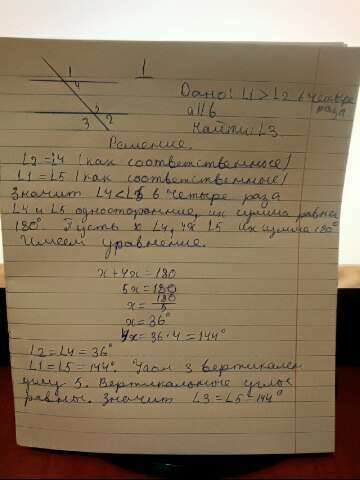 1
1
4
5
3 2
Дано: ∠1 > ∠2 в четыре
раза
a||b
Найти: ∠3.
Решение.
∠2=∠4 (как соответственные)
∠1=∠5 (как соответственные)
Значит ∠4<∠5 в четыре раза
∠4 и ∠5 односторонние, их сумма равна
180°. Пусть x ∠4, 4x ∠5 их сумма 180°
Имеем уравнение.
x+4x=180
5x=180
x=180/5
x=36°
4x=36·4=144°
∠2=∠4=36°
∠1=∠5=144°. Угол 3 вертикален
углу 5. Вертикальные углы
равны. Значит ∠3=∠5=144°